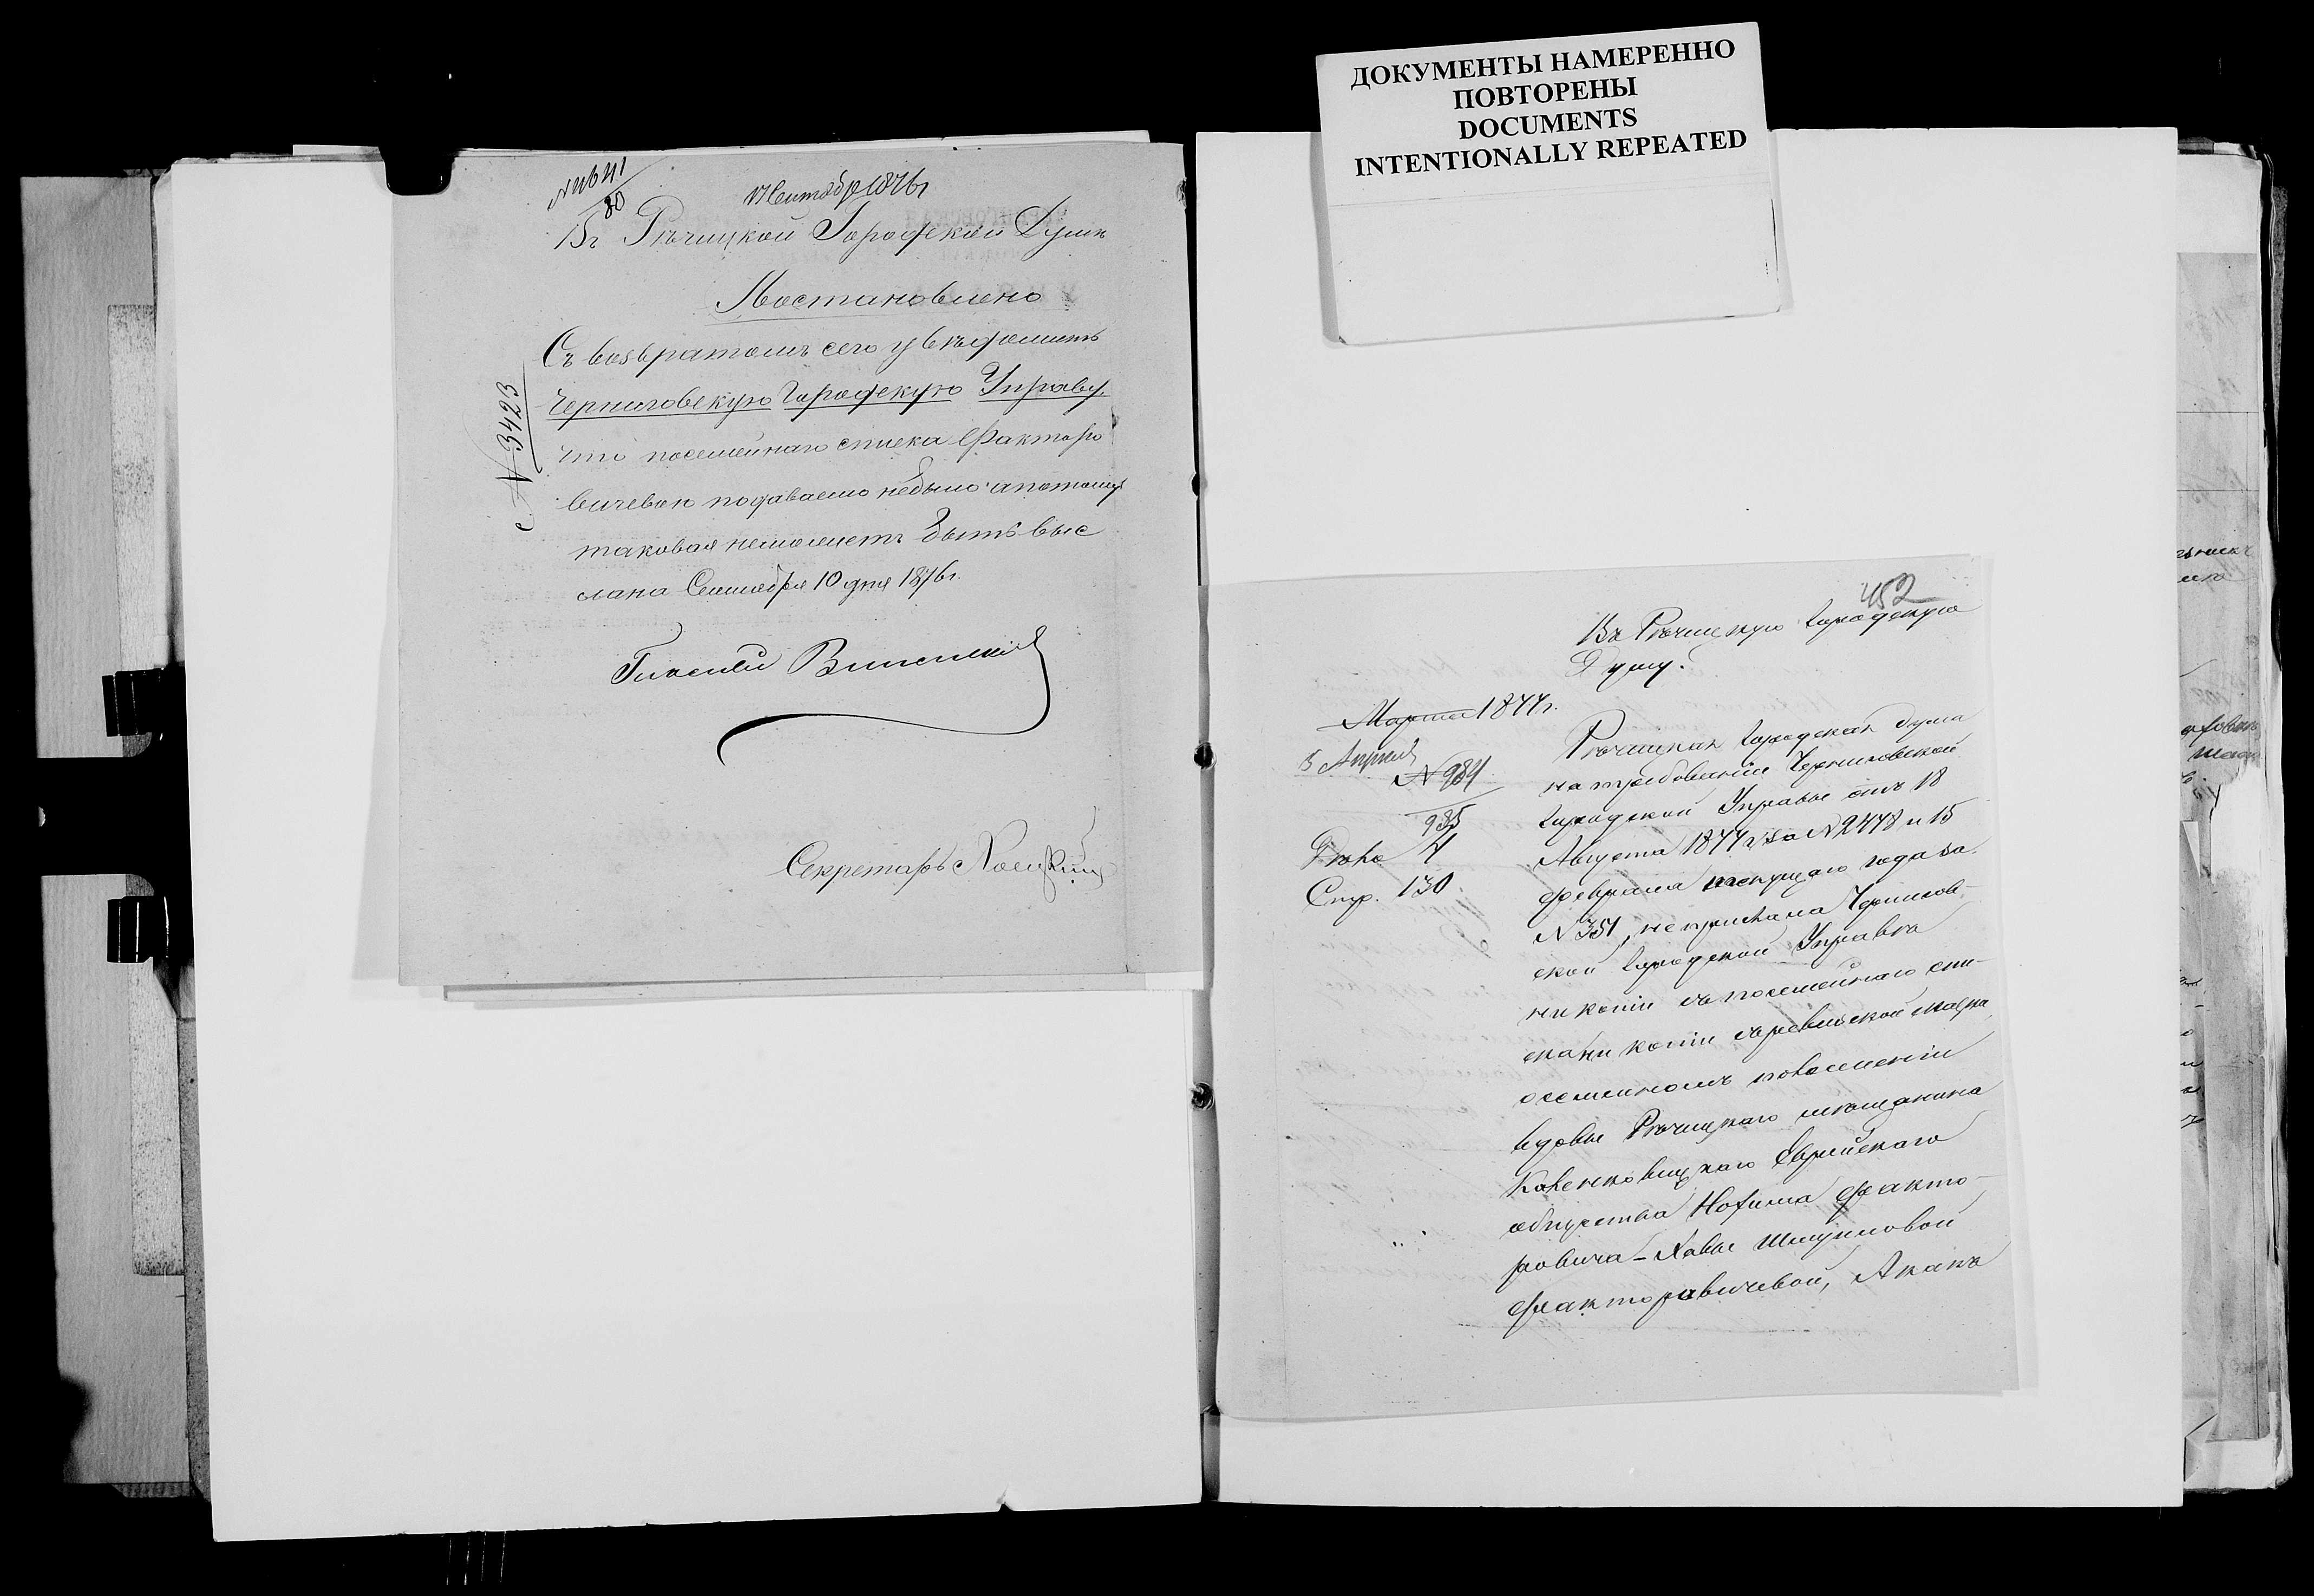 ДОКУМЕНТЫ НАМЕРЕННО
ПОВТОРЕНЫ
DOCUMENTS
INTENTIONALLY REPEATED
80
Сентября 1876 г
Въ Рѣчицкой Городской Думѣ
Постановлено
Съ возвратомъ сего увѣдомить
Черниговскую Городскую Управу,
что посемейнаго списка Факторо
вичевою подаваемо небыло апотому
таковая неможетъ быть выс
лана Сентября 10 дня 1876 г.
№ 3423
Гласный
Секретарь
452
Въ Рѣчицкую Городскую
Думу.
Марта 1877 г.
5 Апреля
№ 984
985
Дѣло 4
Стр. 130.
Рѣчицкая Городская Дума
на требованіе Черниговской
Городской Управы отъ 18
Августа 1877 г за № 2778 и 15
февраля текущаго года за
№ 351, не прислала Чернигов-
ской Городской Управѣ
ни копіи съ посемейнаго спи-
ска ни копіи съ ревизской сказки
о семейномъ положеніи
вдовы Рѣчицкаго мѣщанина
Еврейскаго
общества Нохима Факто-
ровича - Хавы Шмуиловой
Факторовичевой, А какъ